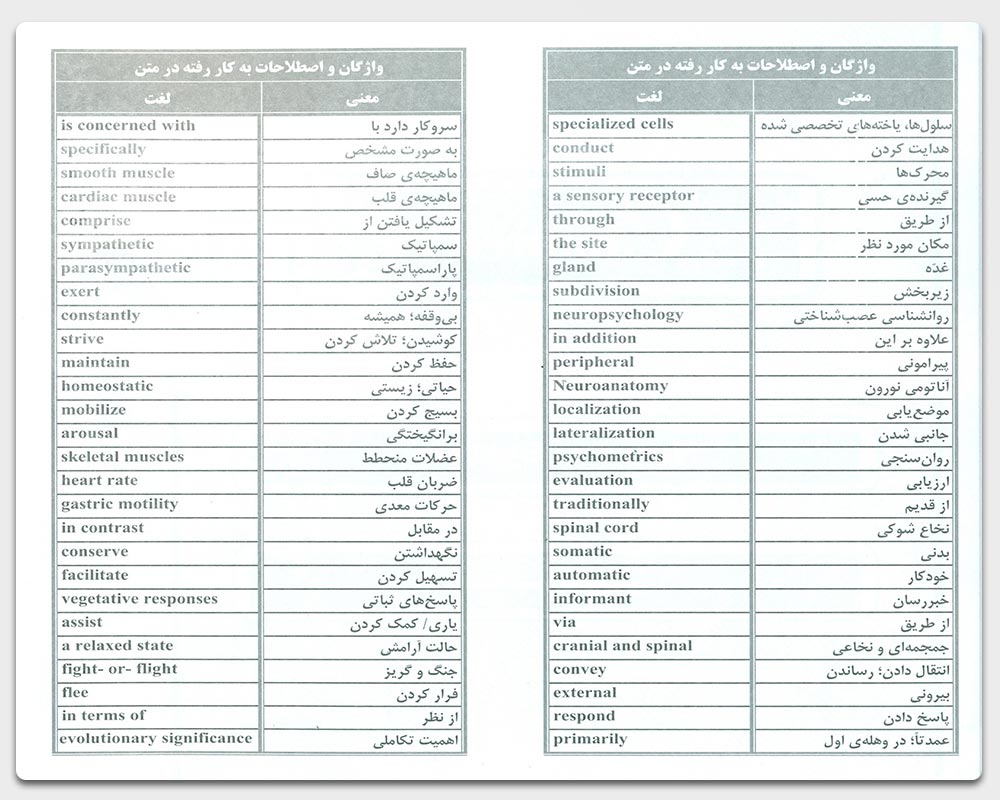 واژگان و اصطلاحات به کار رفته در متن
معنی لغت
سلول‌ها، یاخته‌های تخصصی شده specialized cells
هدایت کردن conduct
محرک‌ها stimuli
گیرنده‌ی حسی a sensory receptor
از طریق through
مکان مورد نظر the site
غدّه gland
زیربخش subdivision
روانشناسی عصب‌شناختی neuropsychology
علاوه بر این in addition
پیرامونی peripheral
آناتومی نورون Neuroanatomy
موضع‌یابی localization
جانبی شدن lateralization
روان‌سنجی psychometrics
ارزیابی evaluation
از قدیم traditionally
نخاع شوکی spinal cord
بدنی somatic
خودکار automatic
خبررسان informant
از طریق via
جمجمه‌ای و نخاعی cranial and spinal
انتقال دادن؛ رساندن convey
بیرونی external
پاسخ دادن respond
عمدتاً؛ در وهله‌ی اول primarily
واژگان و اصطلاحات به کار رفته در متن
معنی لغت
سروکار دارد با is concerned with
به صورت مشخص specifically
ماهیچه‌ی صاف smooth muscle
ماهیچه‌ی قلب cardiac muscle
تشکیل یافتن از comprise
سمپاتیک sympathetic
پاراسمپاتیک parasympathetic
وارد کردن exert
بی‌وقفه؛ همیشه constantly
کوشیدن؛ تلاش کردن strive
حفظ کردن maintain
حیاتی؛ زیستی homeostatic
بسیج کردن mobilize
برانگیختگی arousal
عضلات منحطط skeletal muscles
ضربان قلب heart rate
حرکات معدی gastric motility
در مقابل in contrast
نگهداشتن conserve
تسهیل کردن facilitate
پاسخ‌های ثباتی vegetative responses
یاری/ کمک کردن assist
حالت آرامش a relaxed state
جنگ و گریز fight- or- flight
فرار کردن flee
از نظر in terms of
اهمیت تکاملی evolutionary significance